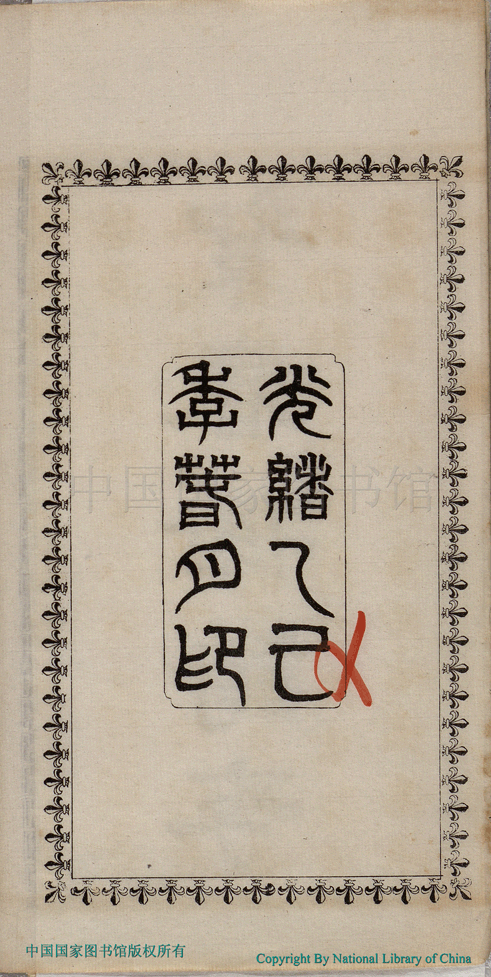 光緒乙巳
季春月印
中国国家图书馆
中国国家图书馆版权所有
Copyright By National Library of China